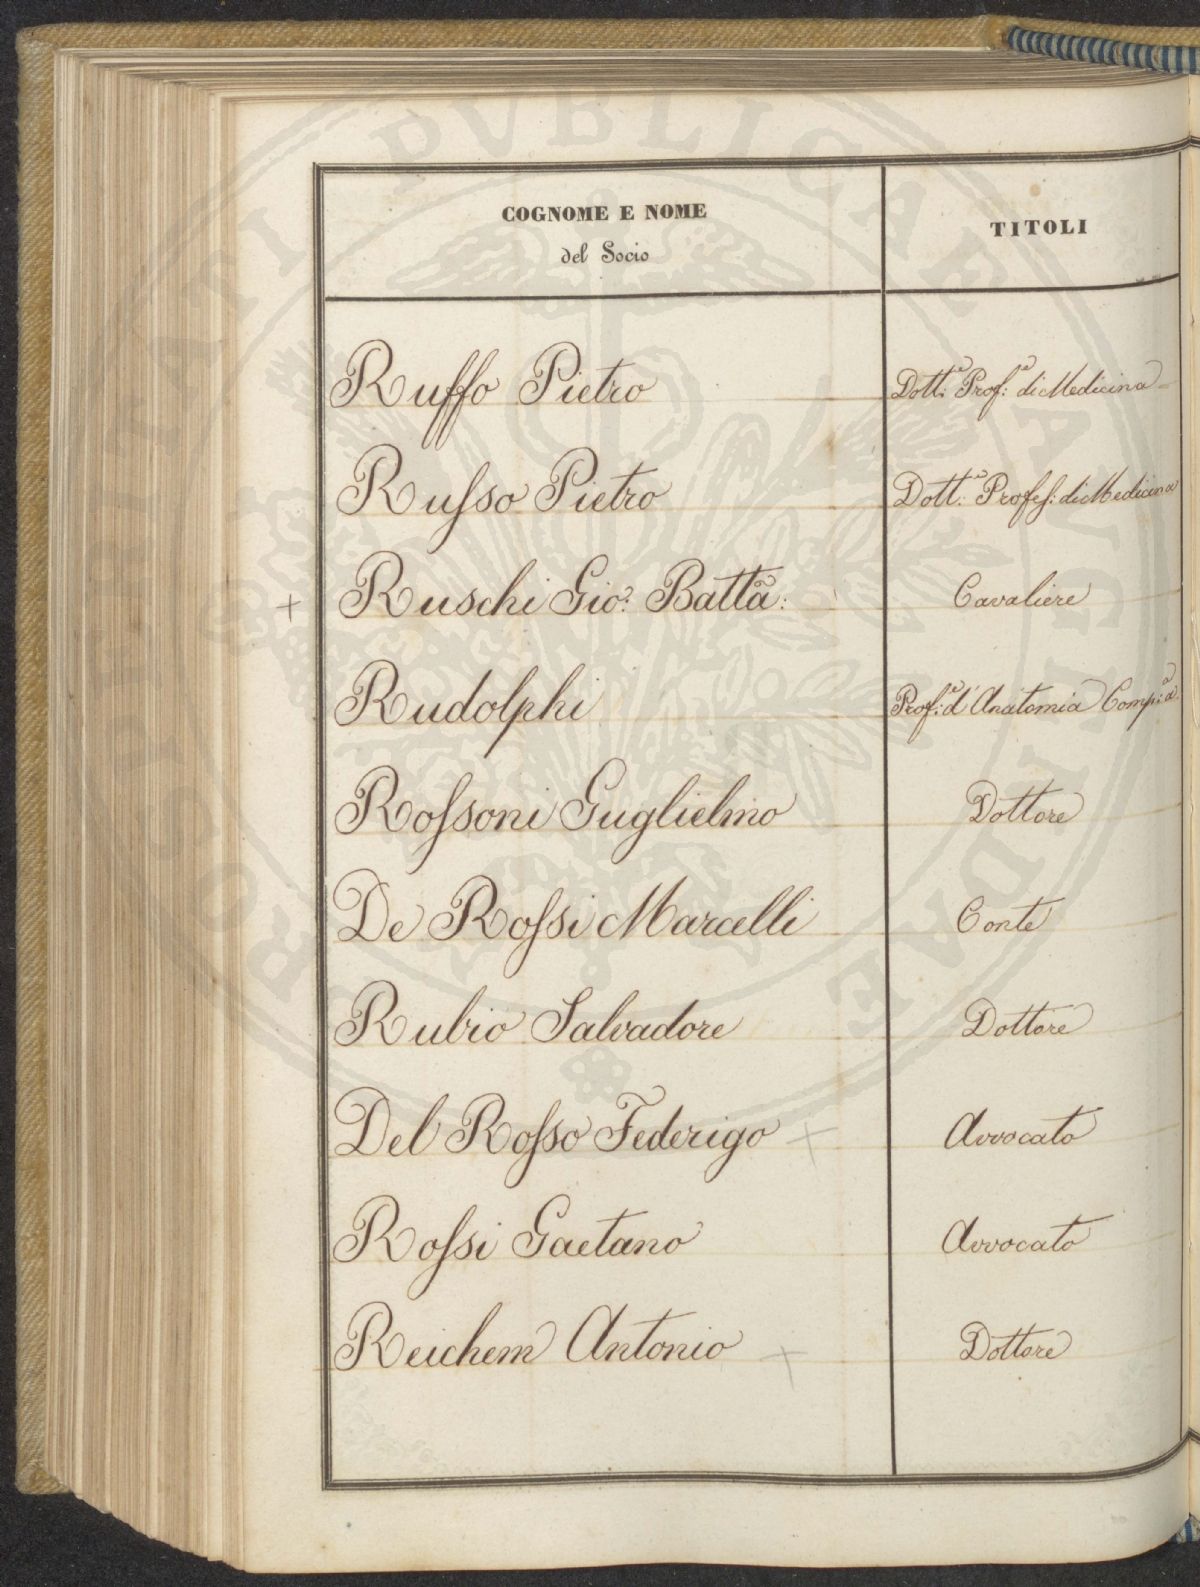 COGNOME E NOME TITOLI
del Socio
Ruffo Pietro Dott.e Prof.e di Medicina
Rufso Pietro Dott.e Profes: di Medicina
+ Ruschi Gio: Batta: Cavaliere
Rudolphi Prof.e d'Anatomia Comp.a
Rofsoni Guglielmo Dottore
De Rofsi Marcelli Conte
Rubio Salvadore Dottore
Del Rofso Federigo + Avvocato
Rofsi Gaetano Avvocato
Reichem Antonio + Dottore